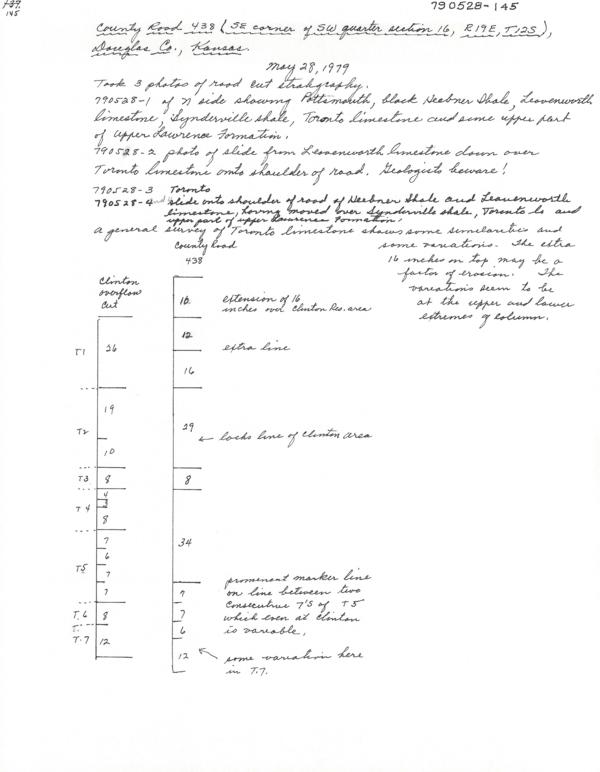 139.
145
790528-145
County Road 438 (SE corner of SW quarter section 16, R19E, T12S),
Douglas Co., Kansas.
May 28, 1979
Took 3 photos of road cut stratigraphy.
790528-1 of N side showing Plattsmouth, black Heebner Shale, Leavenworth
limestone, Synderville shale, Toronto limestone and some upper part
of upper Lawrence Formation.
790528-2 photo of slide from Leavenworth limestone down over
Toronto limestone onto shoulder of road. Geologists beware!
790528-3 Toronto
790528-4 slide onto shoulder of road of Heebner Shale and Leavenworth
limestone, having moved over Synderville shale, Toronto ls and
upper part of upper Lawrence Formation.
A general survey of Toronto limestone shows some similarities and
some variations. The extra
16 inches on top may be a
factor of erosion. The
variations seem to be
at the upper and lower
extremes of column.
County Road
438
Clinton
overflow
cut
16
extension of 16
inches over Clinton Res. area
12
T1
26
extra line
16
19
T2
29
lacks line of Clinton area
10
T3
8
8
4
3
T4
8
7
34
6
T5
7
7
7
prominent marker line
on line between two
consecutive 7's of T5
which even at Clinton
is variable.
T.6
8
7
T.
T.7
12
6
12
some variation here
in T.7.